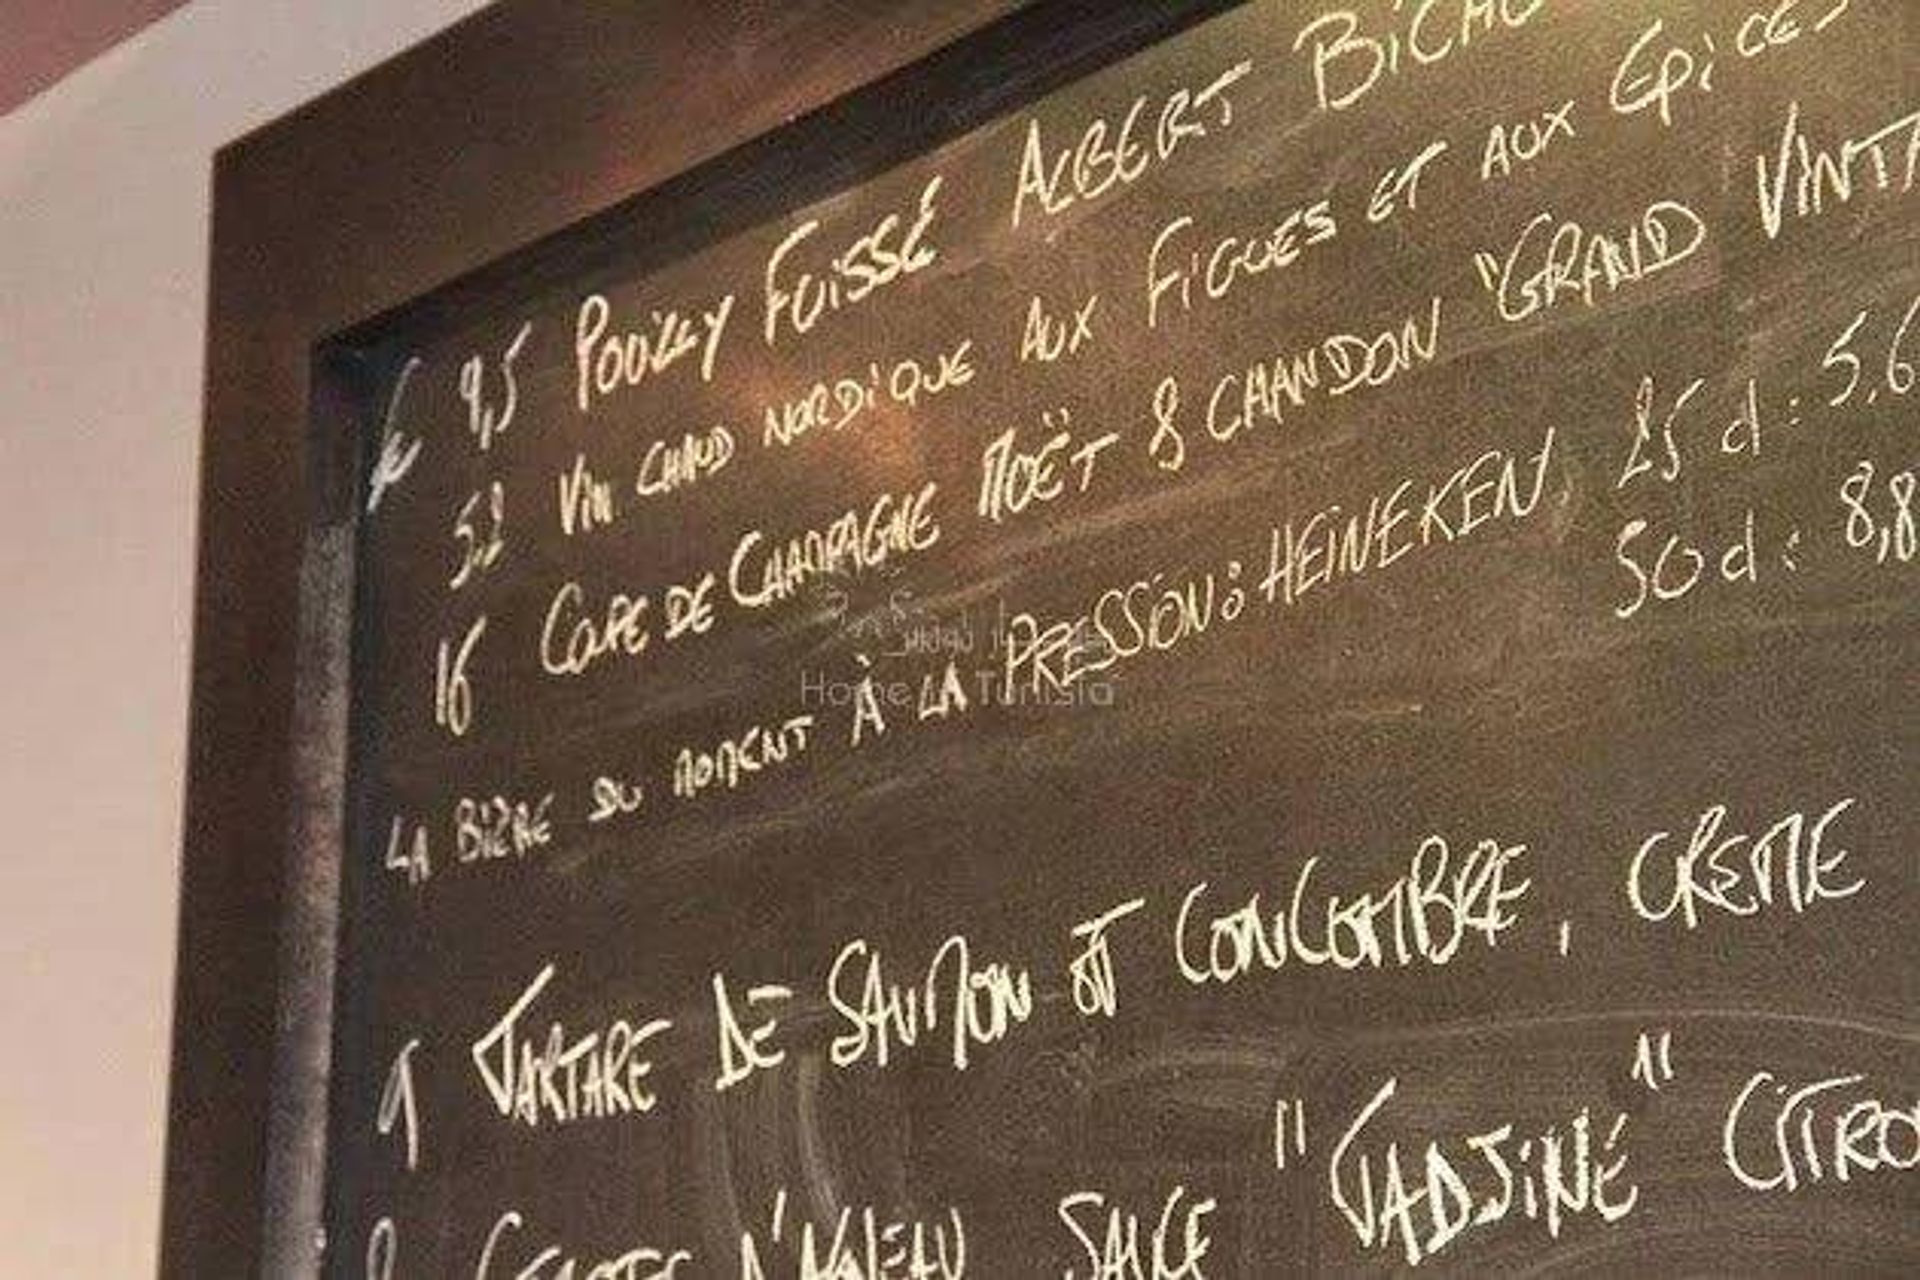 € 9,5 POUILLY FUISSÉ ALBERT BICHO
5,2 VIN CHAUD NORDIQUE AUX FIGUES ET AUX EPICES
16 COUPE DE CHAMPAGNE MOËT & CHANDON "GRAND VINTA
LA BIÈRE DU MOMENT À LA PRESSION: HEINEKEN, 25 d: 5,6
50 d: 8,8
Home in Tunisia
9 TARTARE DE SAUMON ET CONCOMBRE, CREME
D'AGNEAU SAUCE "TADJINE" CITRO